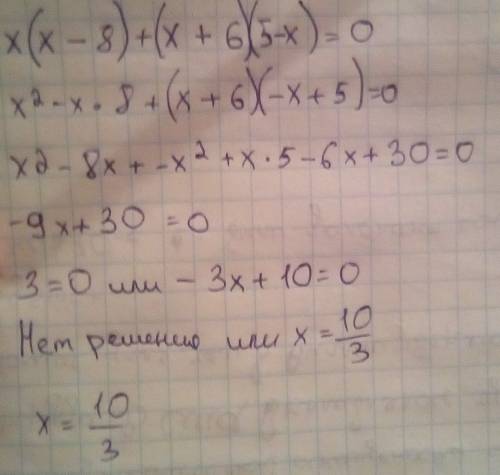 x(x - 8)+(x + 6)(5-x)=0
x² - x · 8 + (x + 6)(-x + 5)=0
x² - 8x + -x² + x · 5 - 6x + 30 = 0
-9x + 30 = 0
3 = 0 или - 3x + 10 = 0
Нет решению или x = 10/3
x = 10/3